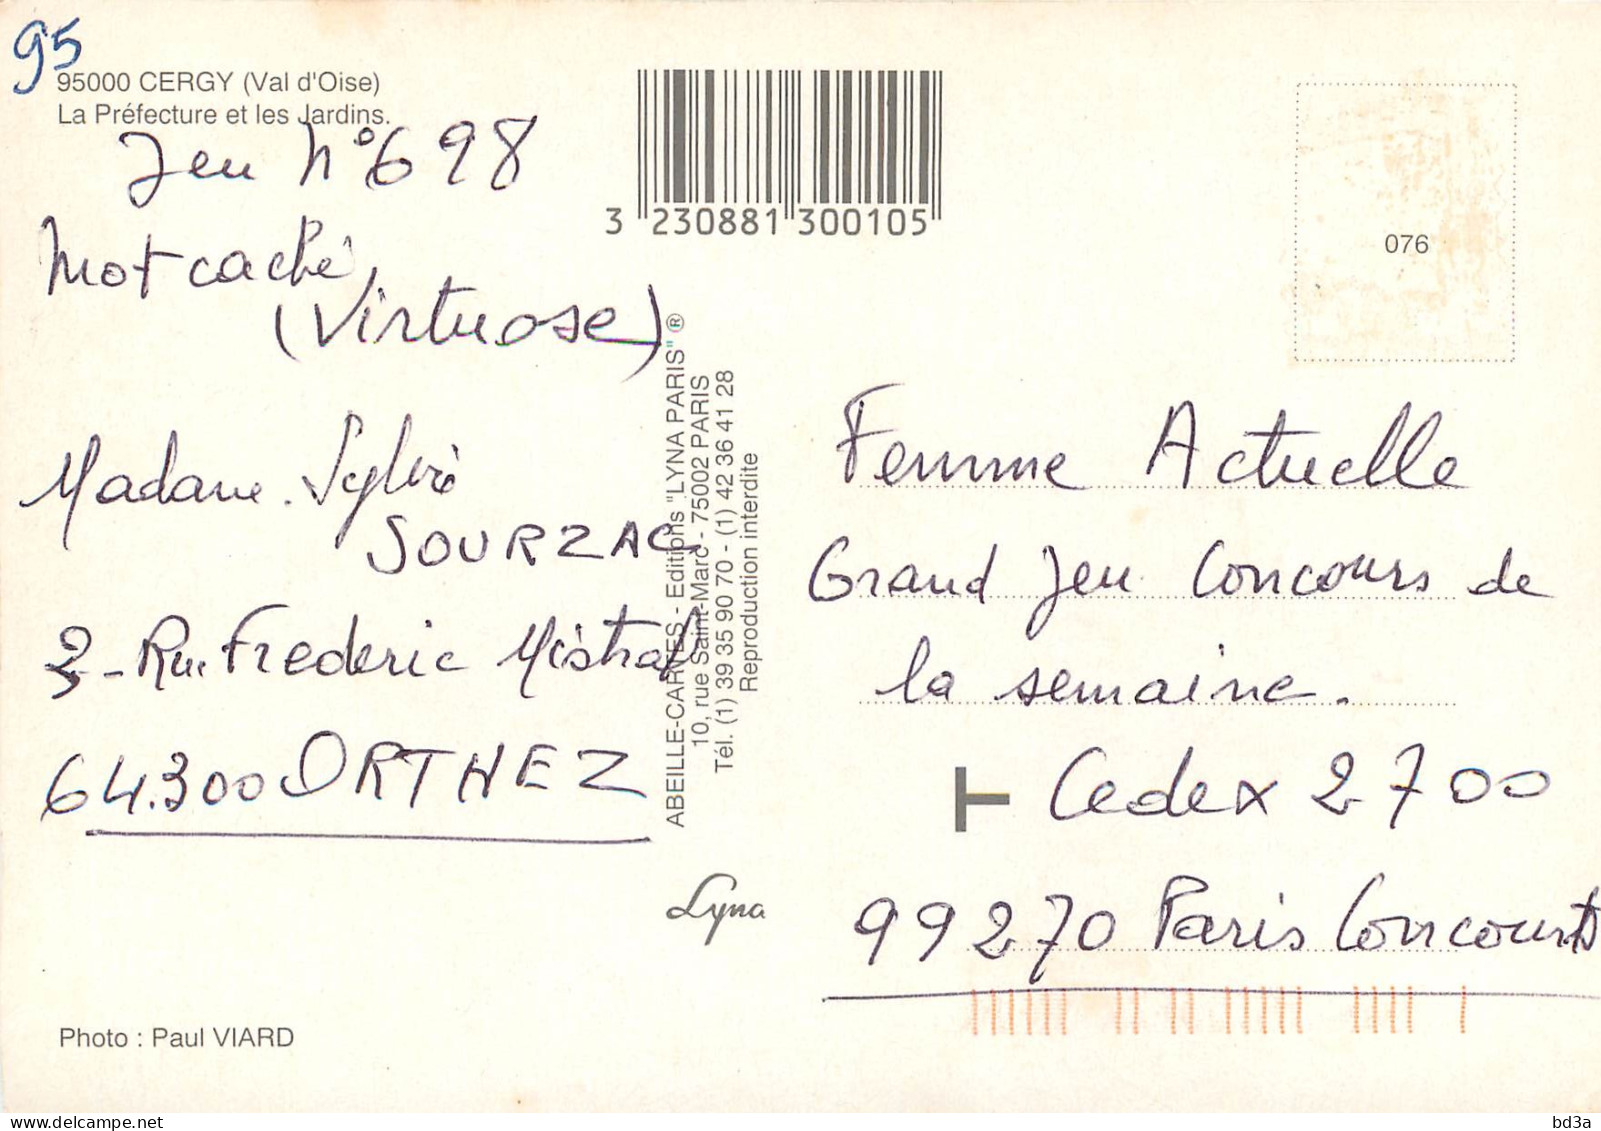 95
95000 CERGY (Val d'Oise)
La Préfecture et les Jardins.
Jeu N° 698
Mot caché
(Virtuose)
Madame Sylvie
SOURZAC
3 - Rue Frederic Mistral
64.300 ORTHEZ
Photo : Paul VIARD
3 230881 300105
ABEILLE-CARTES - Editions "LYNA PARIS" ®
10, rue Saint-Marc - 75002 PARIS
Tél. (1) 39 35 90 70 - (1) 42 36 41 28
Reproduction interdite
Lyna
076
Femme Actuelle
Grand Jeu Concours de
la semaine.
T Cedex 2700
99270 Paris Concours
delcampe.net
bd3a